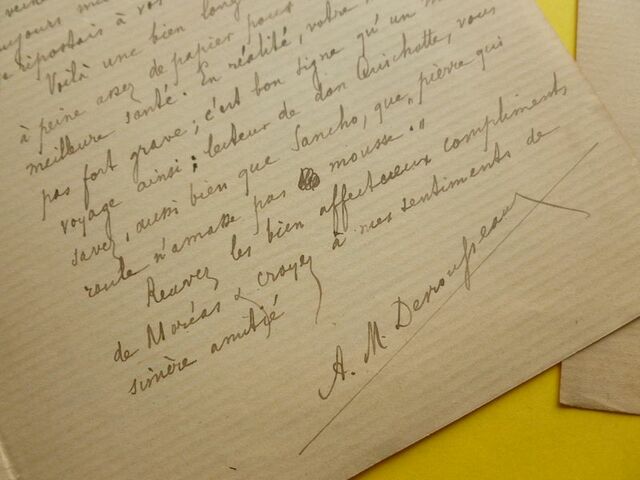 riportais à vos
Voilà une bien long
à peine assez de papier pour
meilleure santé. En réalité, votre
pas fort grave; c'est bon signe qu'un m
voyage ainsi; lecteur de don Quischotte, vous
savez, aussi bien que Sancho, que "pierre qui
roule n'amasse pas mousse."
Recevez les bien affectueux compliments
de Moréas & croyez à mes sentiments de
sincère amitié
A. M. Desrousseaux